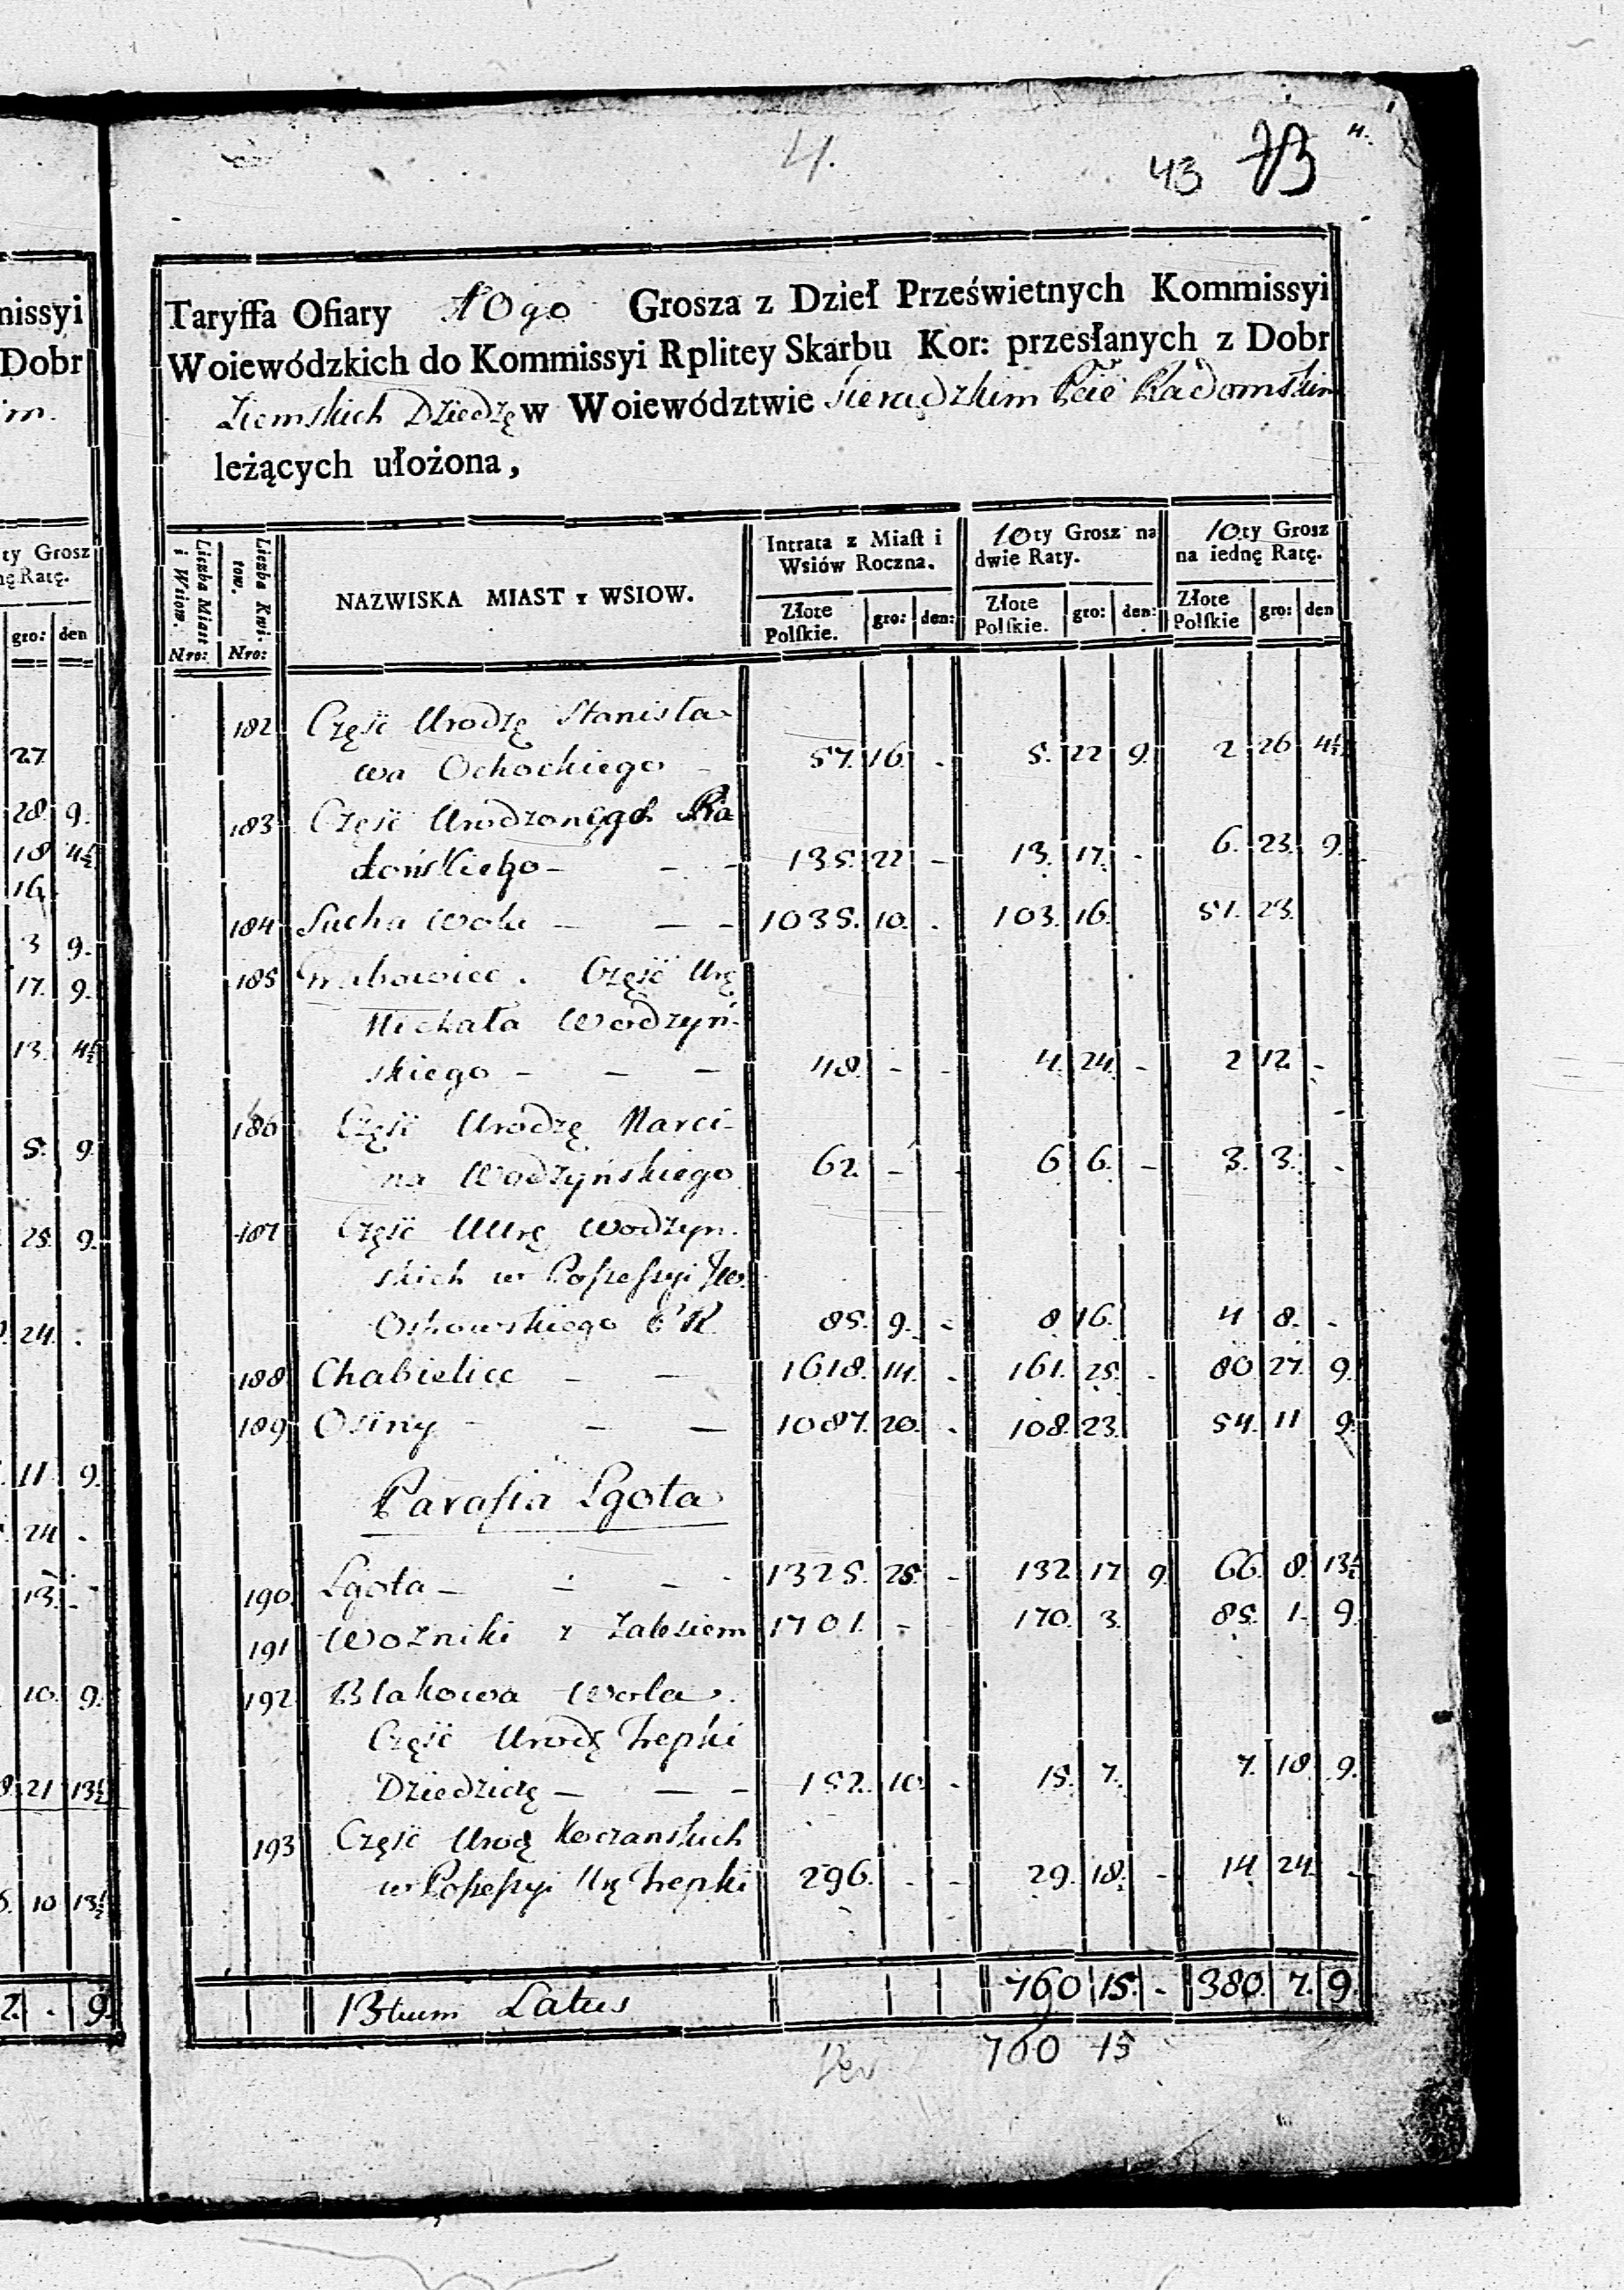 4.
43 73
Taryffa Ofiary 10go Grosza z Dzieł Prześwietnych Kommissyi
Woiewódzkich do Kommissyi Rplitey Skarbu Kor: przesłanych z Dobr
Ziemskich Dziedzę w Woiewództwie Sieradzkim Pcie Radomskim
leżących ułożona,
Liczba Miast i Wsiow. Nro: Liczba Kwitow. Nro: NAZWISKA MIAST Y WSIOW. Intrata z Miast i Wsiów Roczna. 10ty Grosz na dwie Raty. 10ty Grosz na iednę Ratę.
Złote Polskie. gro: den: Złote Polskie. gro: den: Złote Polskie gro: den
182 Część Urodzę Stanisła-
wa Ochockiego - 57. 16. - 5. 22 9. 2 26 4½
183 Część Urodzonego Ra
dońskiego - - - 135. 22 - 13. 17. - 6. 23. 9.
184 Sucha Wola - - - 1035. 10. . 103. 16. 51. 23.
185 Grabowiec. Część Urę
Michała Wodzyń-
skiego - - - 48. - - 4. 24. - 2 12 -
186 Część Urodzę Marci-
na Wodzyńskiego 62. - - 6 6. - 3. 3. -
187 Część UUrę Wodzyn-
skich w Possessyi Jw.
Ostrowskiego 85. 9. - 8 16. 4 8. -
188 Chabielice - - 1618. 14. - 161. 25. - 80 27. 9.
189 Osiny - - - 1087. 20. . 108. 23. 54. 11 9.
Parafia Lgota
190. Lgota - - - - 1325. 25. - 132 17 9. 66. 8. 13½
191 Wozniki z Zalesiem 1701. - 170. 3. 85. 1. 9.
192 Blakowa Wola.
Część Urodę Trepki
Dziedzicę - - - 152. 10. - 15. 7. 7. 18. 9.
193 Część Urodę Koczanskich
w Possessyi Urę Trepki 296. - - 29. 18. - 14 24. -
13tium Latus 760 15. - 380. 7. 9.
760 15